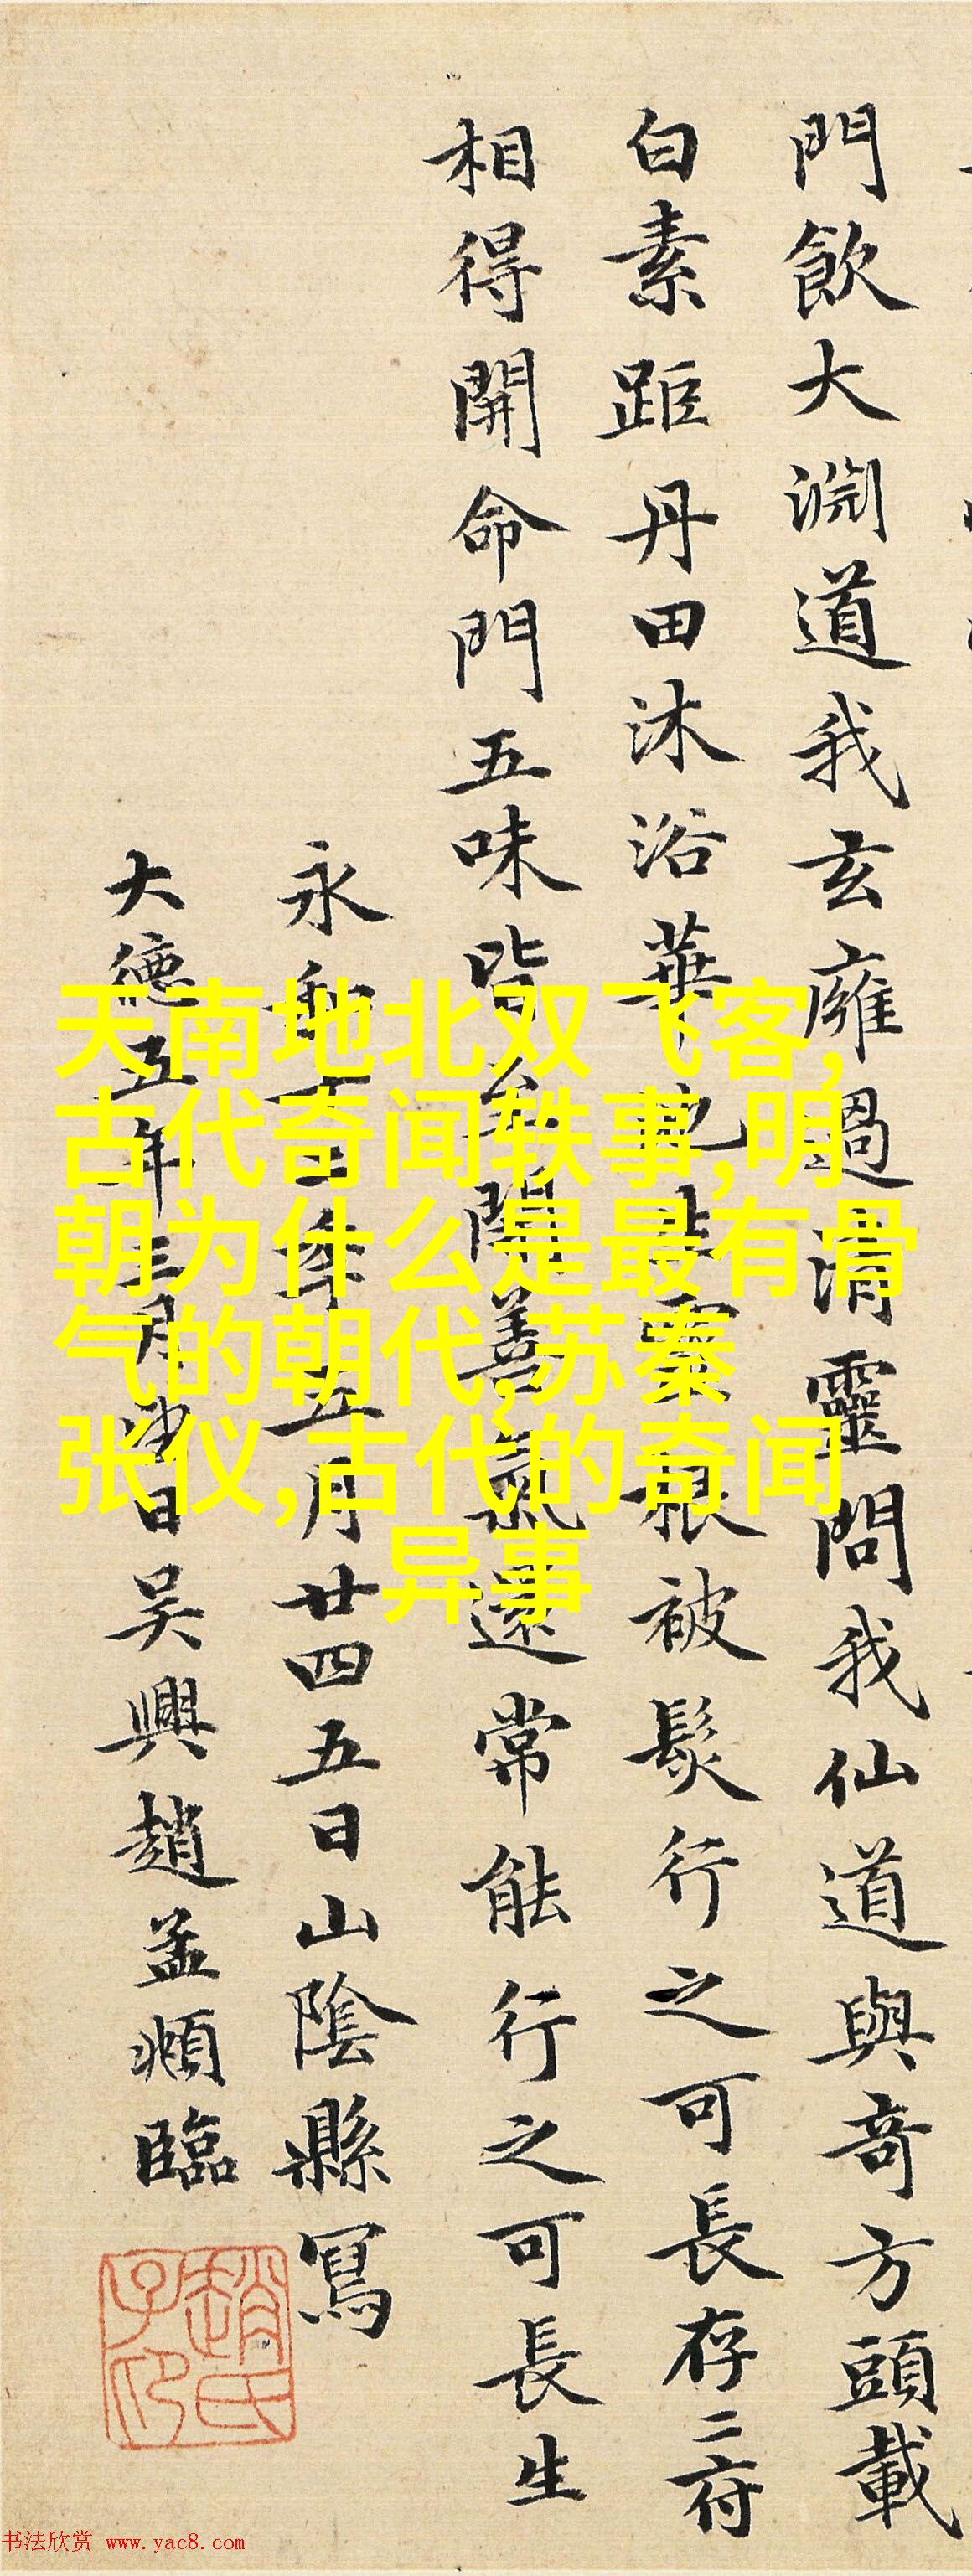 門飲大淵道我玄廱過清靈問我仙道與竒方頭載
白素距丹田沐浴華池生靈根被髮行之可長存二府
相得開命門五味皆至開善氣還常能行之可長生
永和十二年五月廿四五日山陰縣寫
大德五年三月日吳興趙孟頫臨
趙氏子昂
天南地北双飞客,
古代奇闻轶事,明
朝为什么是最有骨
气的朝代,苏秦
张仪,古代的奇闻
异事
书法欣赏 www.yac8.com